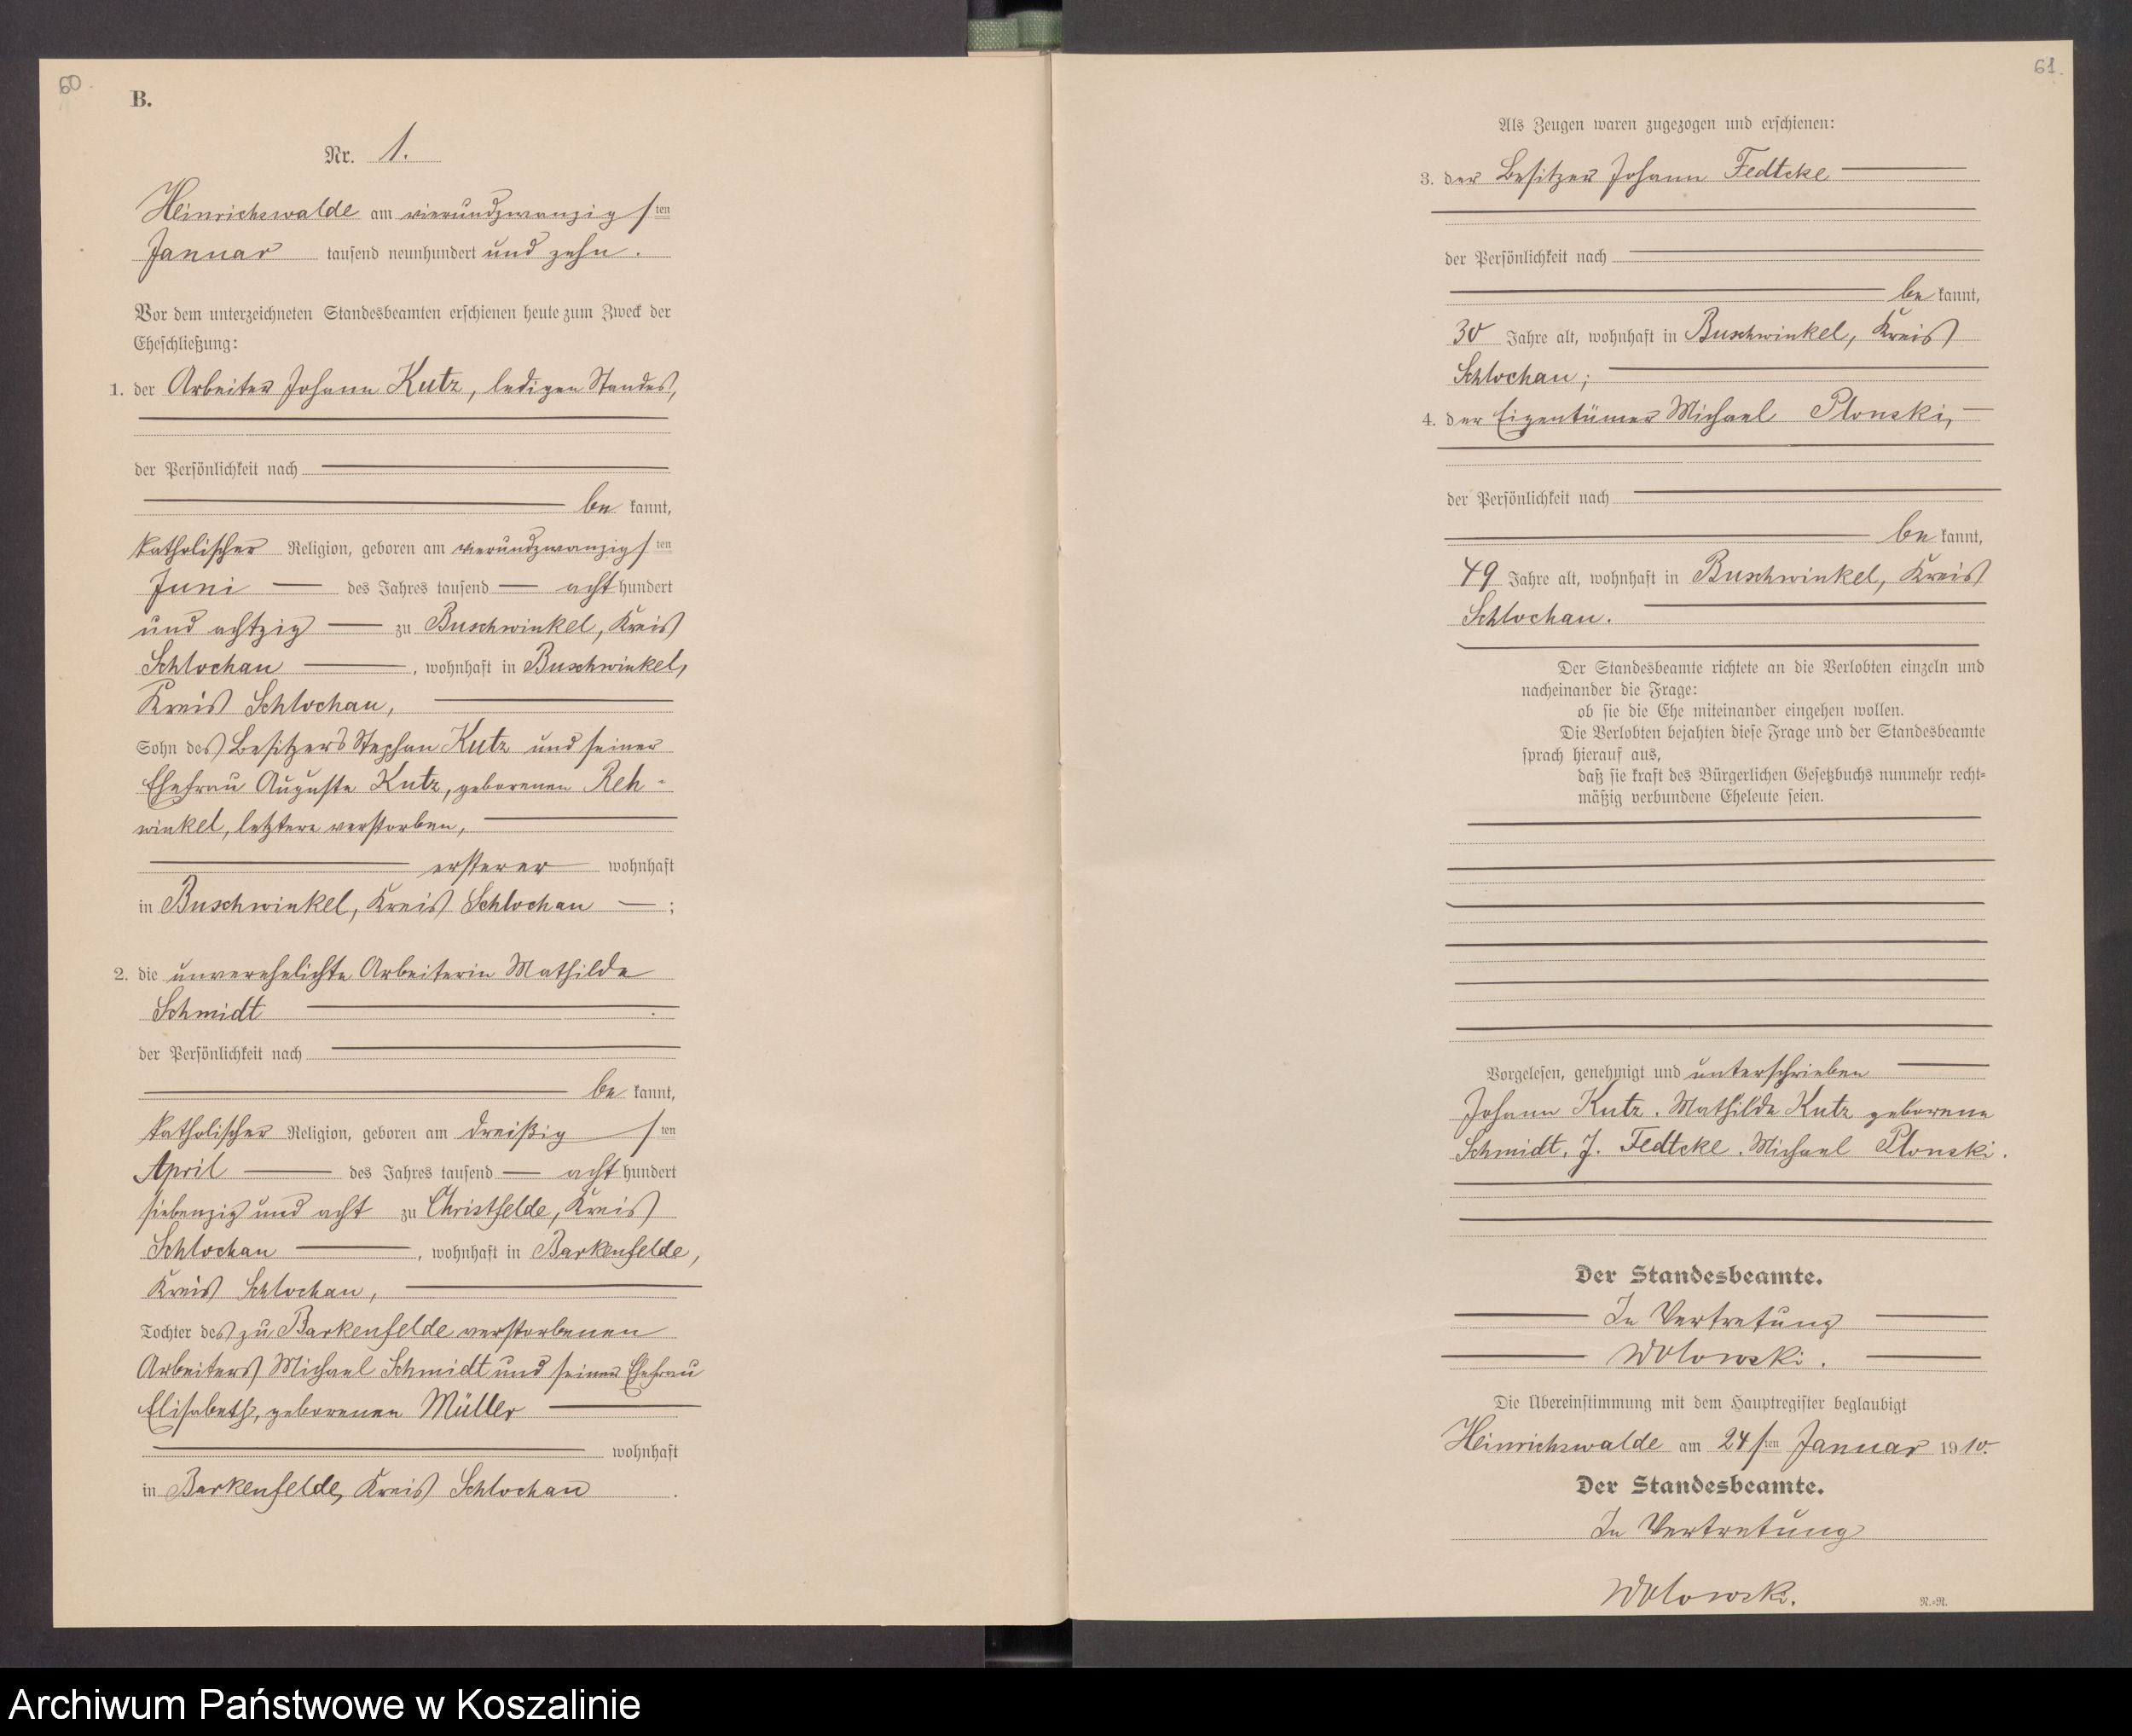 60.
B.
Nr. 1.
Heinrichswalde am vierundzwanzigsten
Januar tausend neunhundert und zehn.
Vor dem unterzeichneten Standesbeamten erschienen heute zum Zweck der
Eheschließung:
1. der Arbeiter Johann Kutz, ledigen Standes,
der Persönlichkeit nach
be kannt,
katholischer Religion, geboren am vierundzwanzigsten
Juni des Jahres tausend acht hundert
und achtzig zu Buschwinkel, Kreis
Schlochau, wohnhaft in Buschwinkel,
Kreis Schlochau,
Sohn des Besitzers Stephan Kutz und seiner
Ehefrau Auguste Kutz, geborenen Reh-
winkel, letztere verstorben,
ersterer wohnhaft
in Buschwinkel, Kreis Schlochau ;
2. die unverehelichte Arbeiterin Mathilde
Schmidt
der Persönlichkeit nach
be kannt,
katholischer Religion, geboren am dreißigsten
April des Jahres tausend acht hundert
siebenzig und acht zu Christfelde, Kreis
Schlochau, wohnhaft in Barkenfelde,
Kreis Schlochau,
Tochter des zu Barkenfelde verstorbenen
Arbeiters Michael Schmidt und seiner Ehefrau
Elisabeth, geborenen Müller
wohnhaft
in Barkenfelde, Kreis Schlochau.
61.
Als Zeugen waren zugezogen und erschienen:
3. der Besitzer Johann Fedtcke
der Persönlichkeit nach
be kannt,
30 Jahre alt, wohnhaft in Buschwinkel, Kreis
Schlochau;
4. der Eigentümer Michael Plonski,
der Persönlichkeit nach
be kannt,
49 Jahre alt, wohnhaft in Buschwinkel, Kreis
Schlochau.
Der Standesbeamte richtete an die Verlobten einzeln und
nacheinander die Frage:
ob sie die Ehe miteinander eingehen wollen.
Die Verlobten bejahten diese Frage und der Standesbeamte
sprach hierauf aus,
daß sie kraft des Bürgerlichen Gesetzbuchs nunmehr recht-
mäßig verbundene Eheleute seien.
Vorgelesen, genehmigt und unterschrieben
Johann Kutz. Mathilde Kutz geborene
Schmidt. J. Fedtcke. Michael Plonski.
Der Standesbeamte.
In Vertretung
Wolowski.
Die Übereinstimmung mit dem Hauptregister beglaubigt
Heinrichswalde am 24sten Januar 1910.
Der Standesbeamte.
In Vertretung
Wolowski.
N.-R.
Archiwum Państwowe w Koszalinie